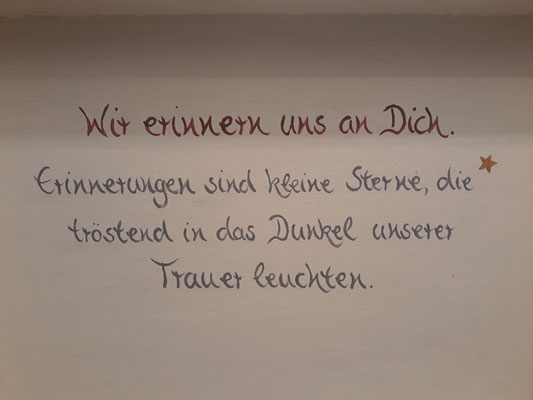 Wir erinnern uns an Dich.
Erinnerungen sind kleine Sterne, die
tröstend in das Dunkel unserer
Trauer leuchten.